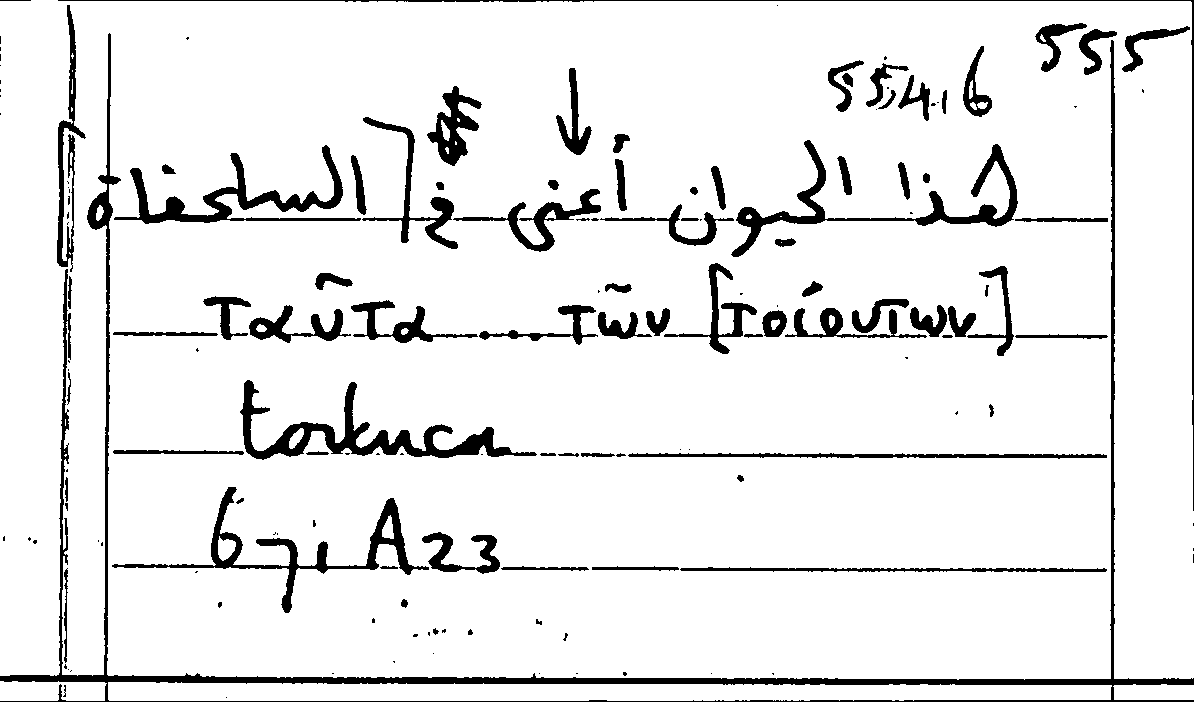 555
554,6
هذا الحيوان أعني [السلحفاة]
ταῦτα .... τῶν [τοιούτων]
tortuca
671 A23